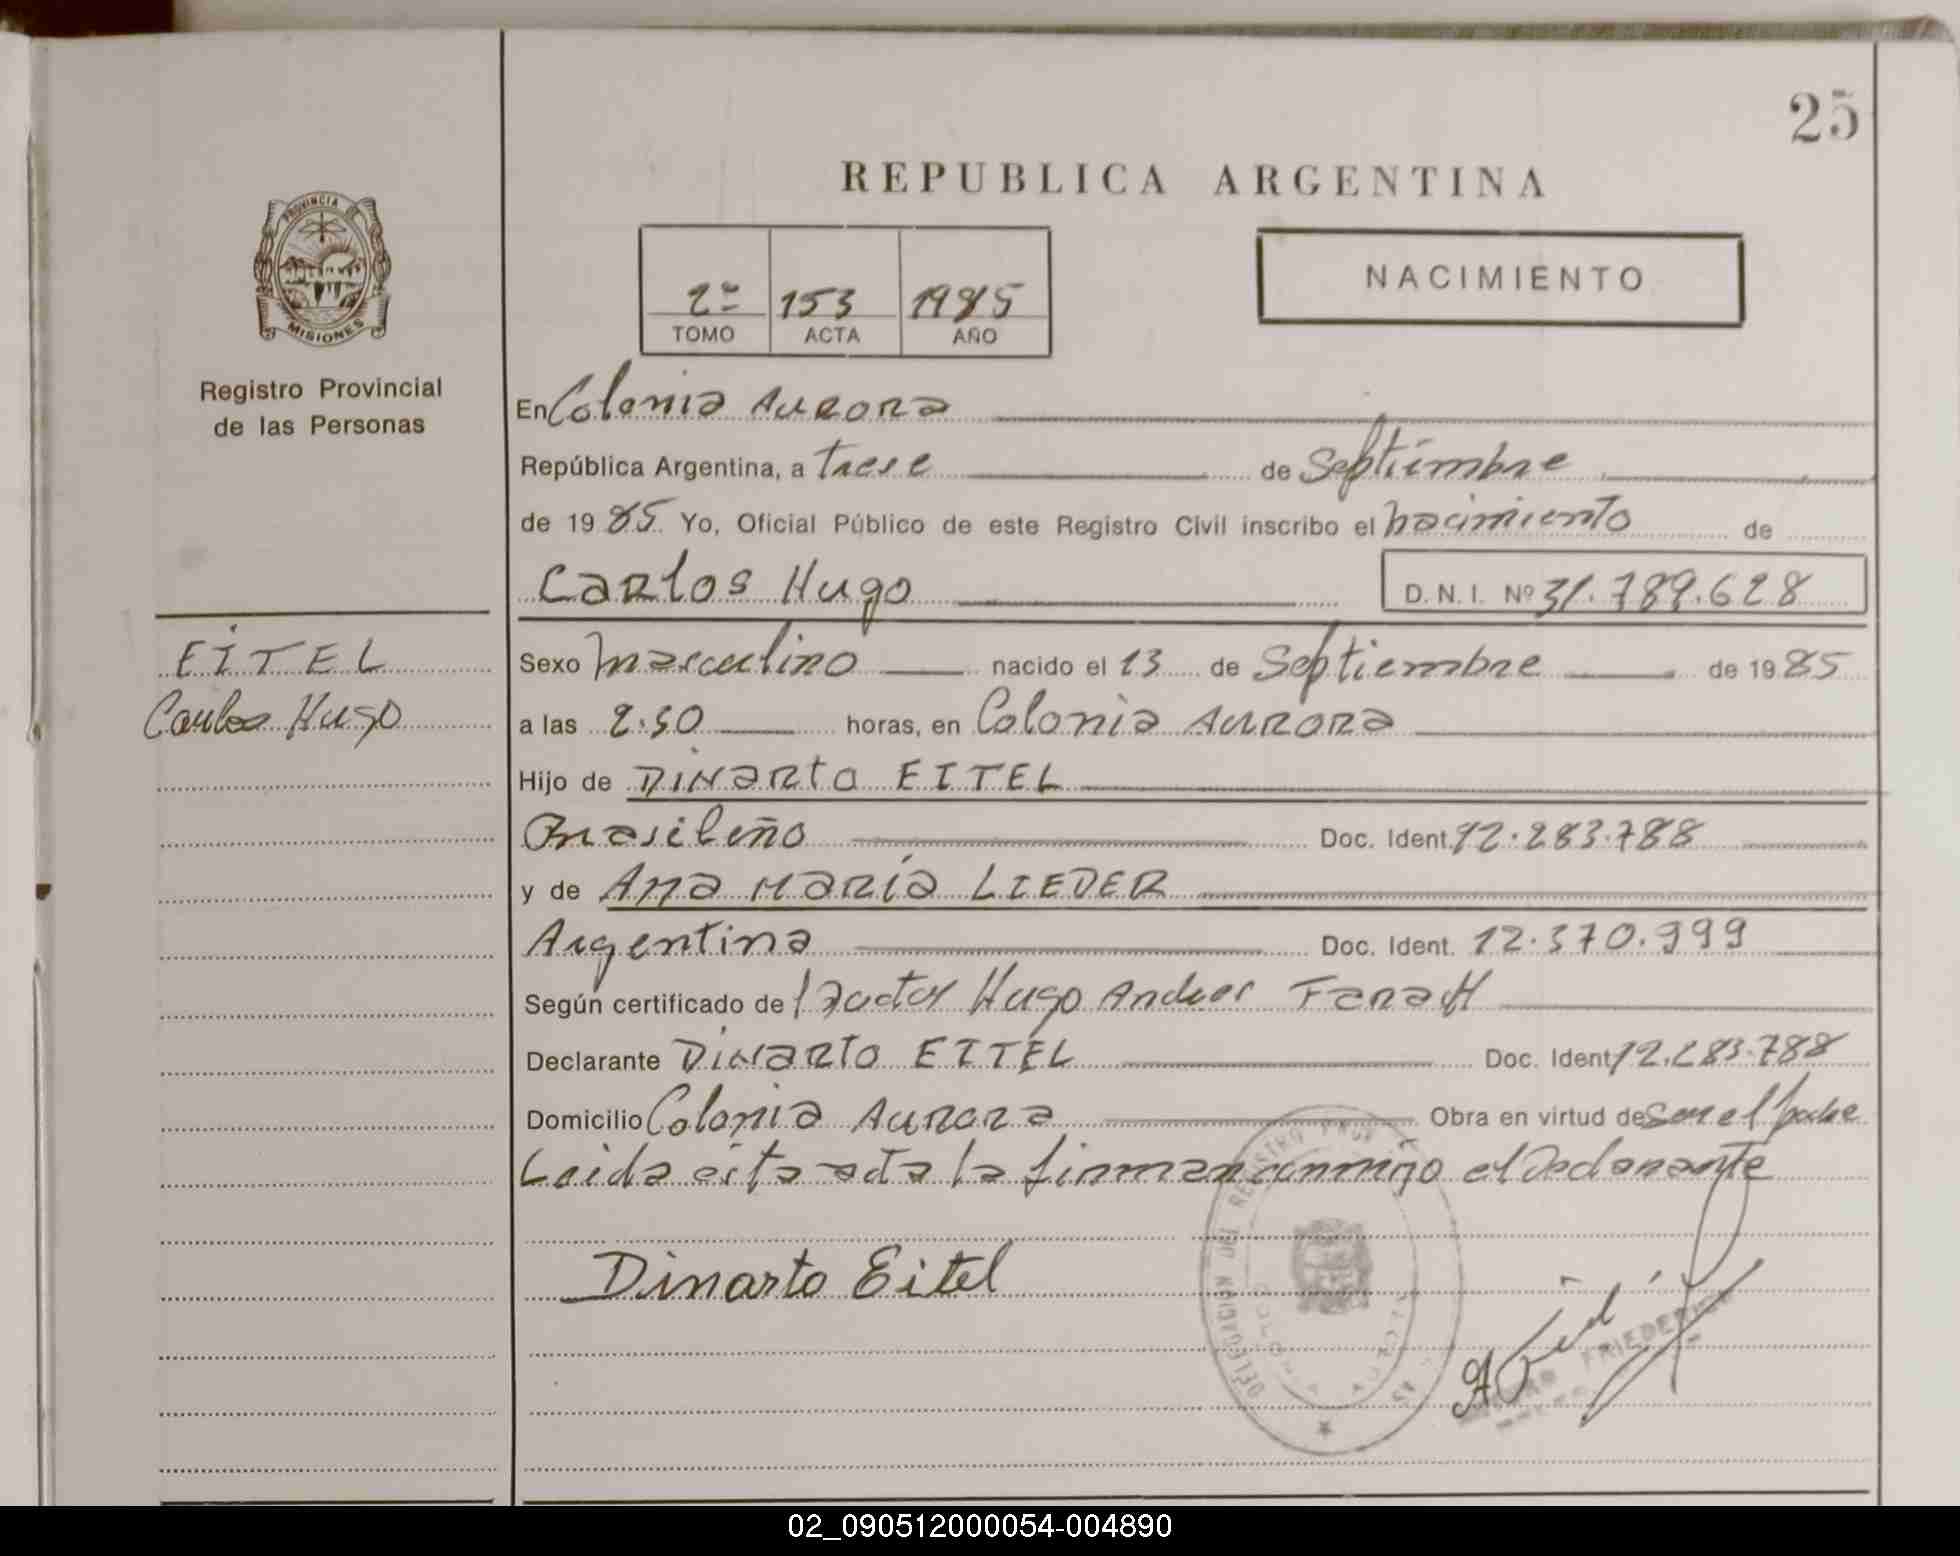 25
REPUBLICA ARGENTINA
PROVINCIA DE
MISIONES
Registro Provincial
de las Personas
2º 153 1985
TOMO ACTA AÑO
NACIMIENTO
En Colonia Aurora
República Argentina, a trese de Septiembre
de 1985. Yo, Oficial Público de este Registro Civil inscribo el nacimiento de
Carlos Hugo D.N.I. Nº 31.789.628
EITEL
Carlos Hugo
Sexo masculino nacido el 13 de Septiembre de 1985
a las 2:30 horas, en Colonia Aurora
Hijo de DINARTO EITEL
Brasileño Doc. Ident. 92.283.788
y de ANA MARÍA LIEDER
Argentina Doc. Ident. 12.370.999
Según certificado de Doctor Hugo Andres
Declarante DINARTO EITEL Doc. Ident. 92.283.788
Domicilio Colonia Aurora Obra en virtud de ser el padre
Leida esta acta la firman conmigo el Declarante
Dinarto Eitel
DELEGACION DEL REGISTRO PROV
COLONIA AURORA
FRIEDERICH
02_090512000054-004890